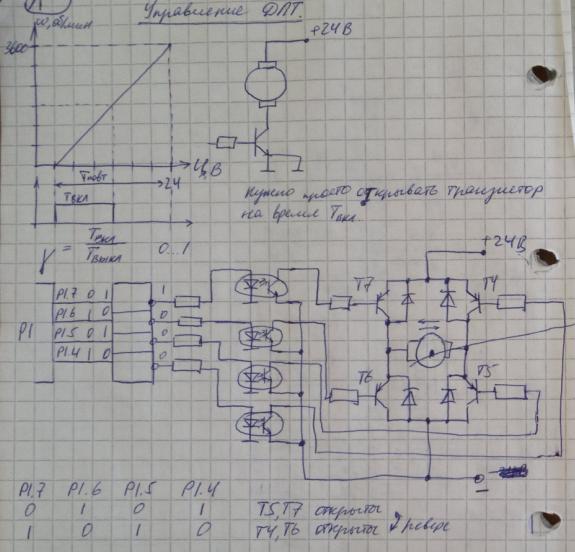 Управление ДПТ.
ω, об/мин
3600
+24В
U, В
Tповт
24
Tвкл
Нужно просто открывать транзистор
на время Tвкл.
γ = Tвкл / Tвыкл 0...1
+24В
P1
P1.7 0 1
P1.6 1 0
P1.5 0 1
P1.4 1 0
1
0
0
0
T7
T4
T6
T5
P1.7 P1.6 P1.5 P1.4
0 1 0 1 T5, T7 открыты
1 0 1 0 T4, T6 открыты реверс